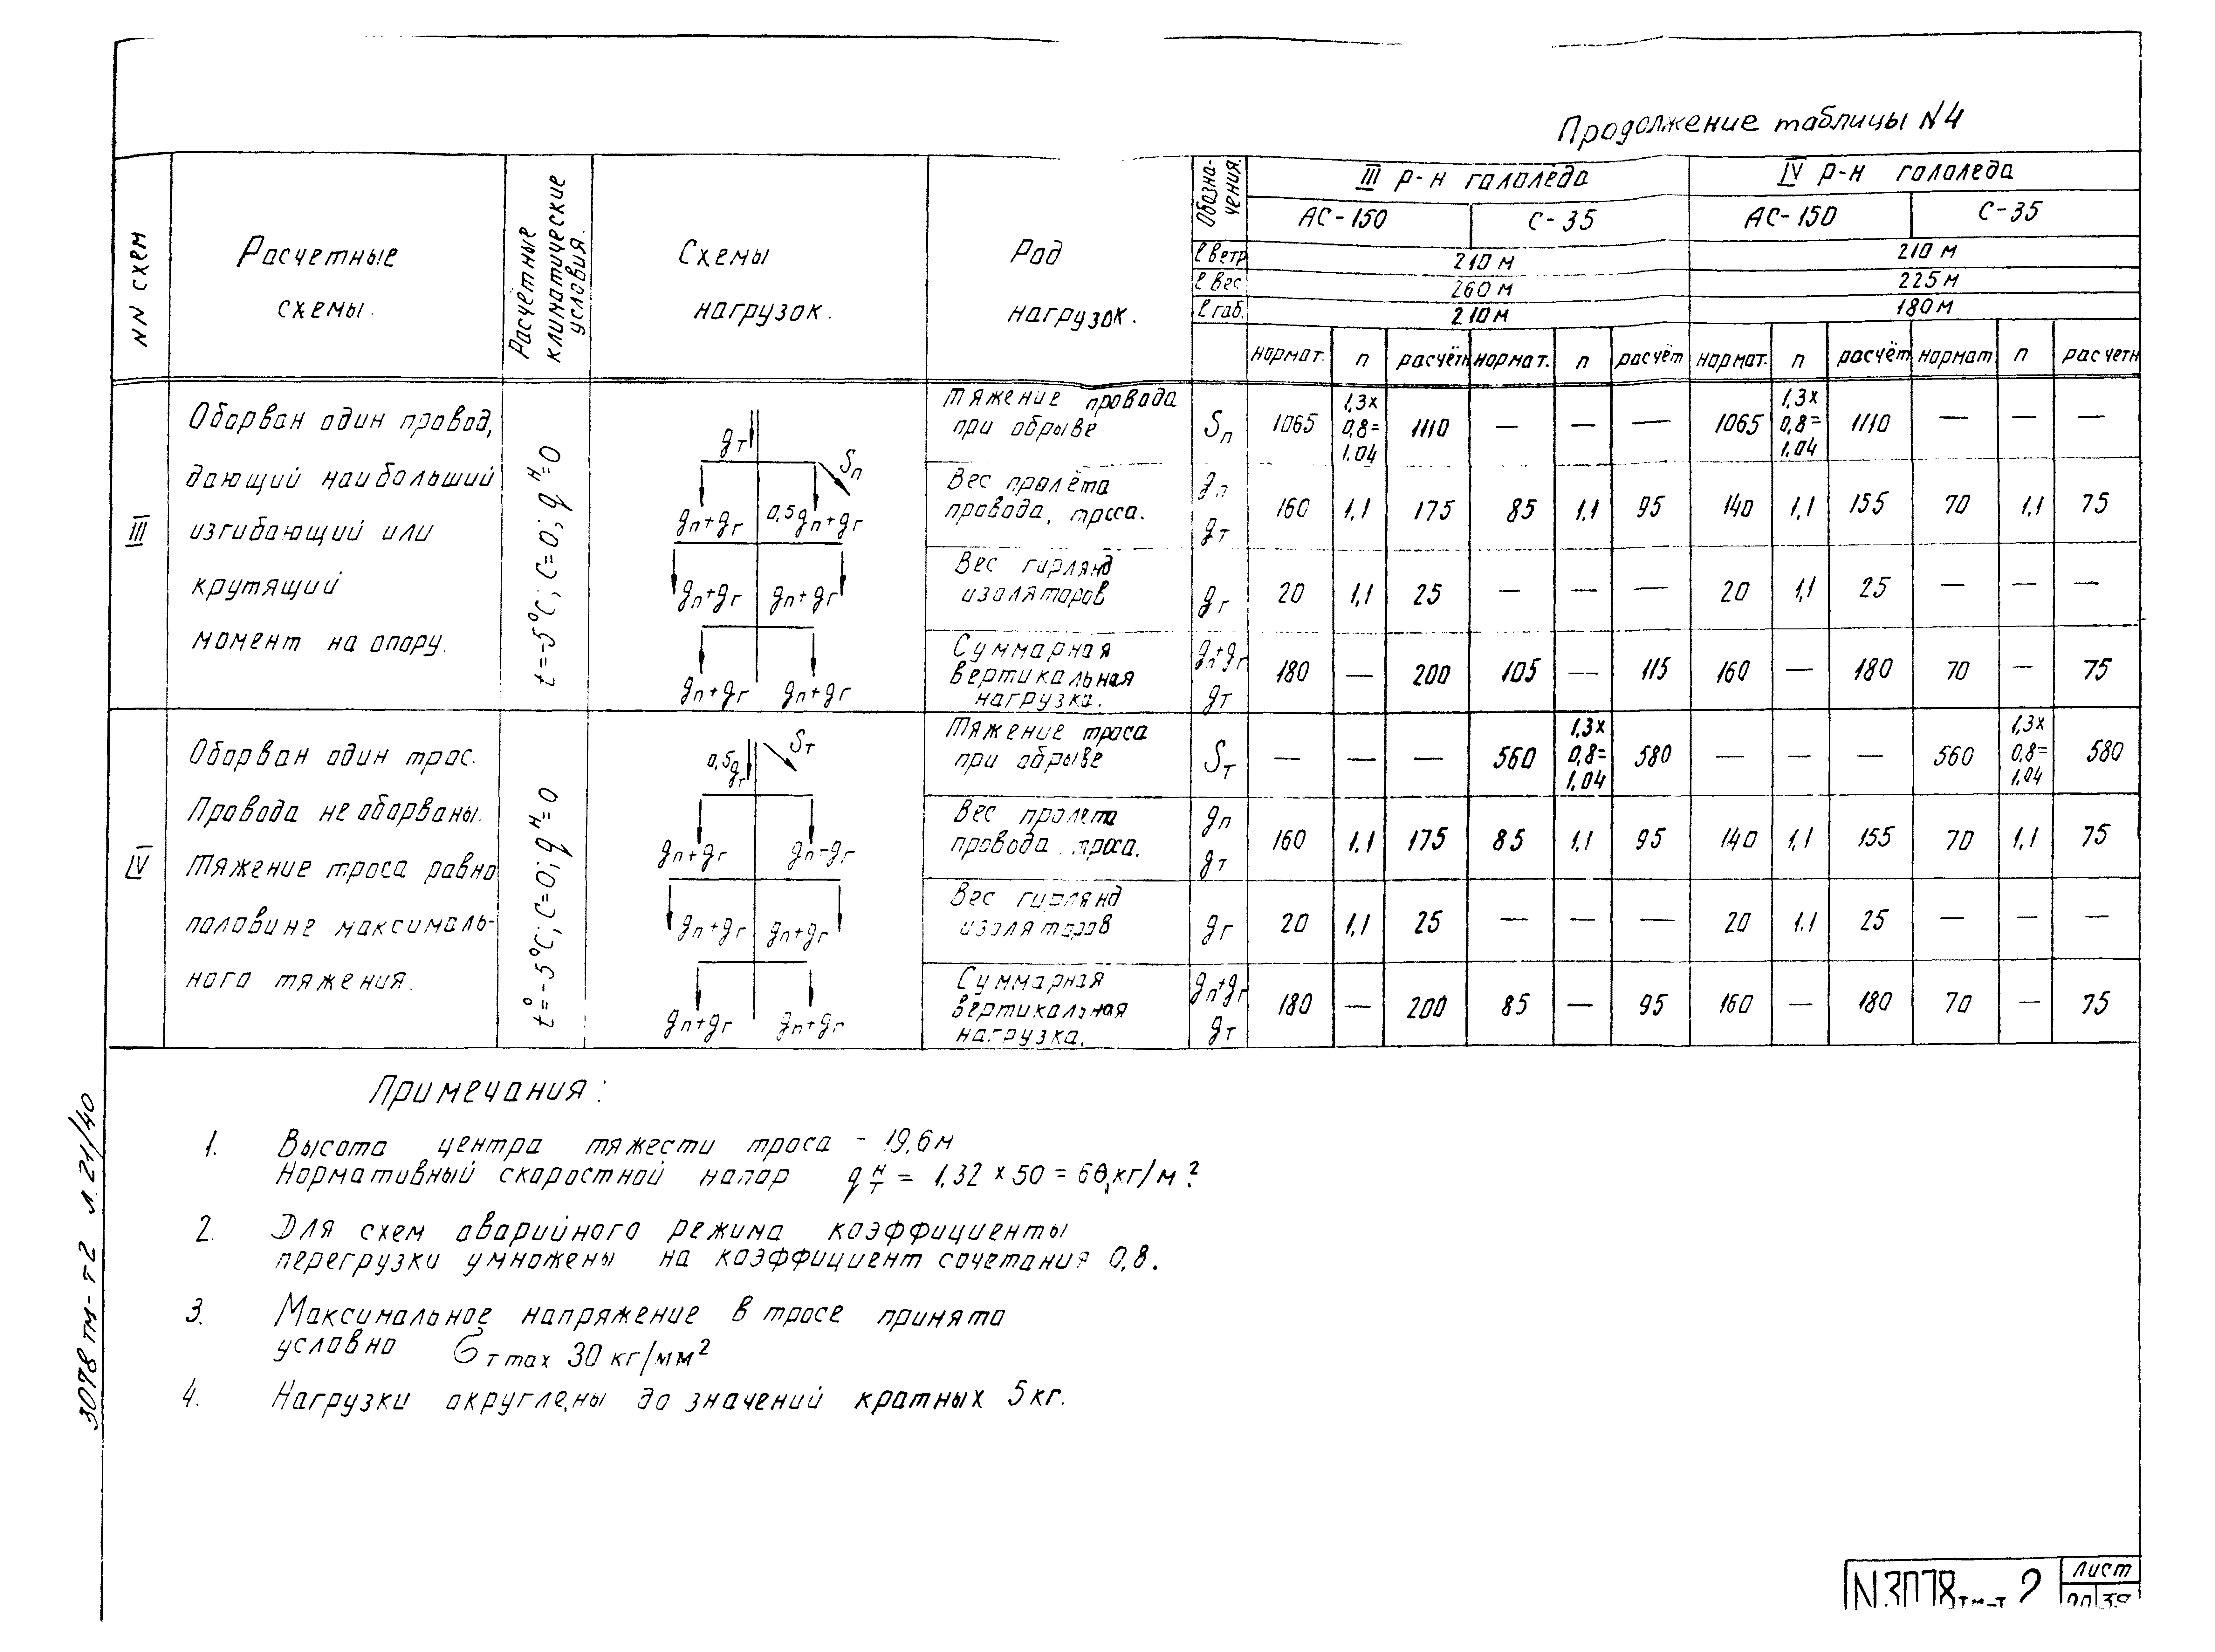 Продолжение таблицы N4
NN схем
Расчетные
схемы.
Расчётные
климатические
условия.
Схемы
нагрузок.
Род
нагрузок.
Обозна-
чения.
III р-н гололёда
IV р-н гололёда
АС-150
С-35
АС-150
С-35
ℓ ветр
210 м
210 м
ℓ вес
260 м
225 м
ℓ габ.
210 м
180 м
нормат. п расчётн нормат. п расчёт нормат. п расчёт нормат п расчетн
III
Оборван один провод,
дающий наибольший
изгибающий или
крутящий
момент на опору.
t=-5°C; C=0; qᴴ=0
gт
Sп
gп+gг 0,5gп+gг
gп+gг gп+gг
gп+gг gп+gг
Тяжение провода
при обрыве
Sп
1065 1,3х 0,8= 1,04 1110 — — — 1065 1,3х 0,8= 1,04 1110 — — —
Вес пролёта
провода, троса.
gп
gт
160 1,1 175 85 1,1 95 140 1,1 155 70 1,1 75
Вес гирлянд
изоляторов
gг
20 1,1 25 — — — 20 1,1 25 — — —
Суммарная
вертикальная
нагрузка.
gп+gг
gт
180 — 200 105 — 115 160 — 180 70 — 75
IV
Оборван один трос.
Провода не оборваны.
Тяжение троса равно
половине максималь-
ного тяжения.
t°=-5°C; C=0; qᴴ=0
0,5gт
Sт
gп+gг gп-gг
gп+gг gп+gг
gп+gг gп+gг
Тяжение троса
при обрыве
Sт
— — — 560 1,3х 0,8= 1,04 580 — — — 560 1,3х 0,8= 1,04 580
Вес пролета
провода троса.
gп
gт
160 1,1 175 85 1,1 95 140 1,1 155 70 1,1 75
Вес гирлянд
изоляторов
gг
20 1,1 25 — — — 20 1.1 25 — — —
Суммарная
вертикальная
нагрузка.
gп+gг
gт
180 — 200 85 — 95 160 — 180 70 — 75
Примечания:
1. Высота центра тяжести троса - 19,6м
Нормативный скоростной напор qᴴт = 1,32 × 50 = 66 кг/м²
2. Для схем аварийного режима коэффициенты
перегрузки умножены на коэффициент сочетания 0,8.
3. Максимальное напряжение в тросе принято
условно бт max 30 кг/мм²
4. Нагрузки округлены до значений кратных 5кг.
3078 тм-т2 л.21/40
N3078тм-т 2
Лист